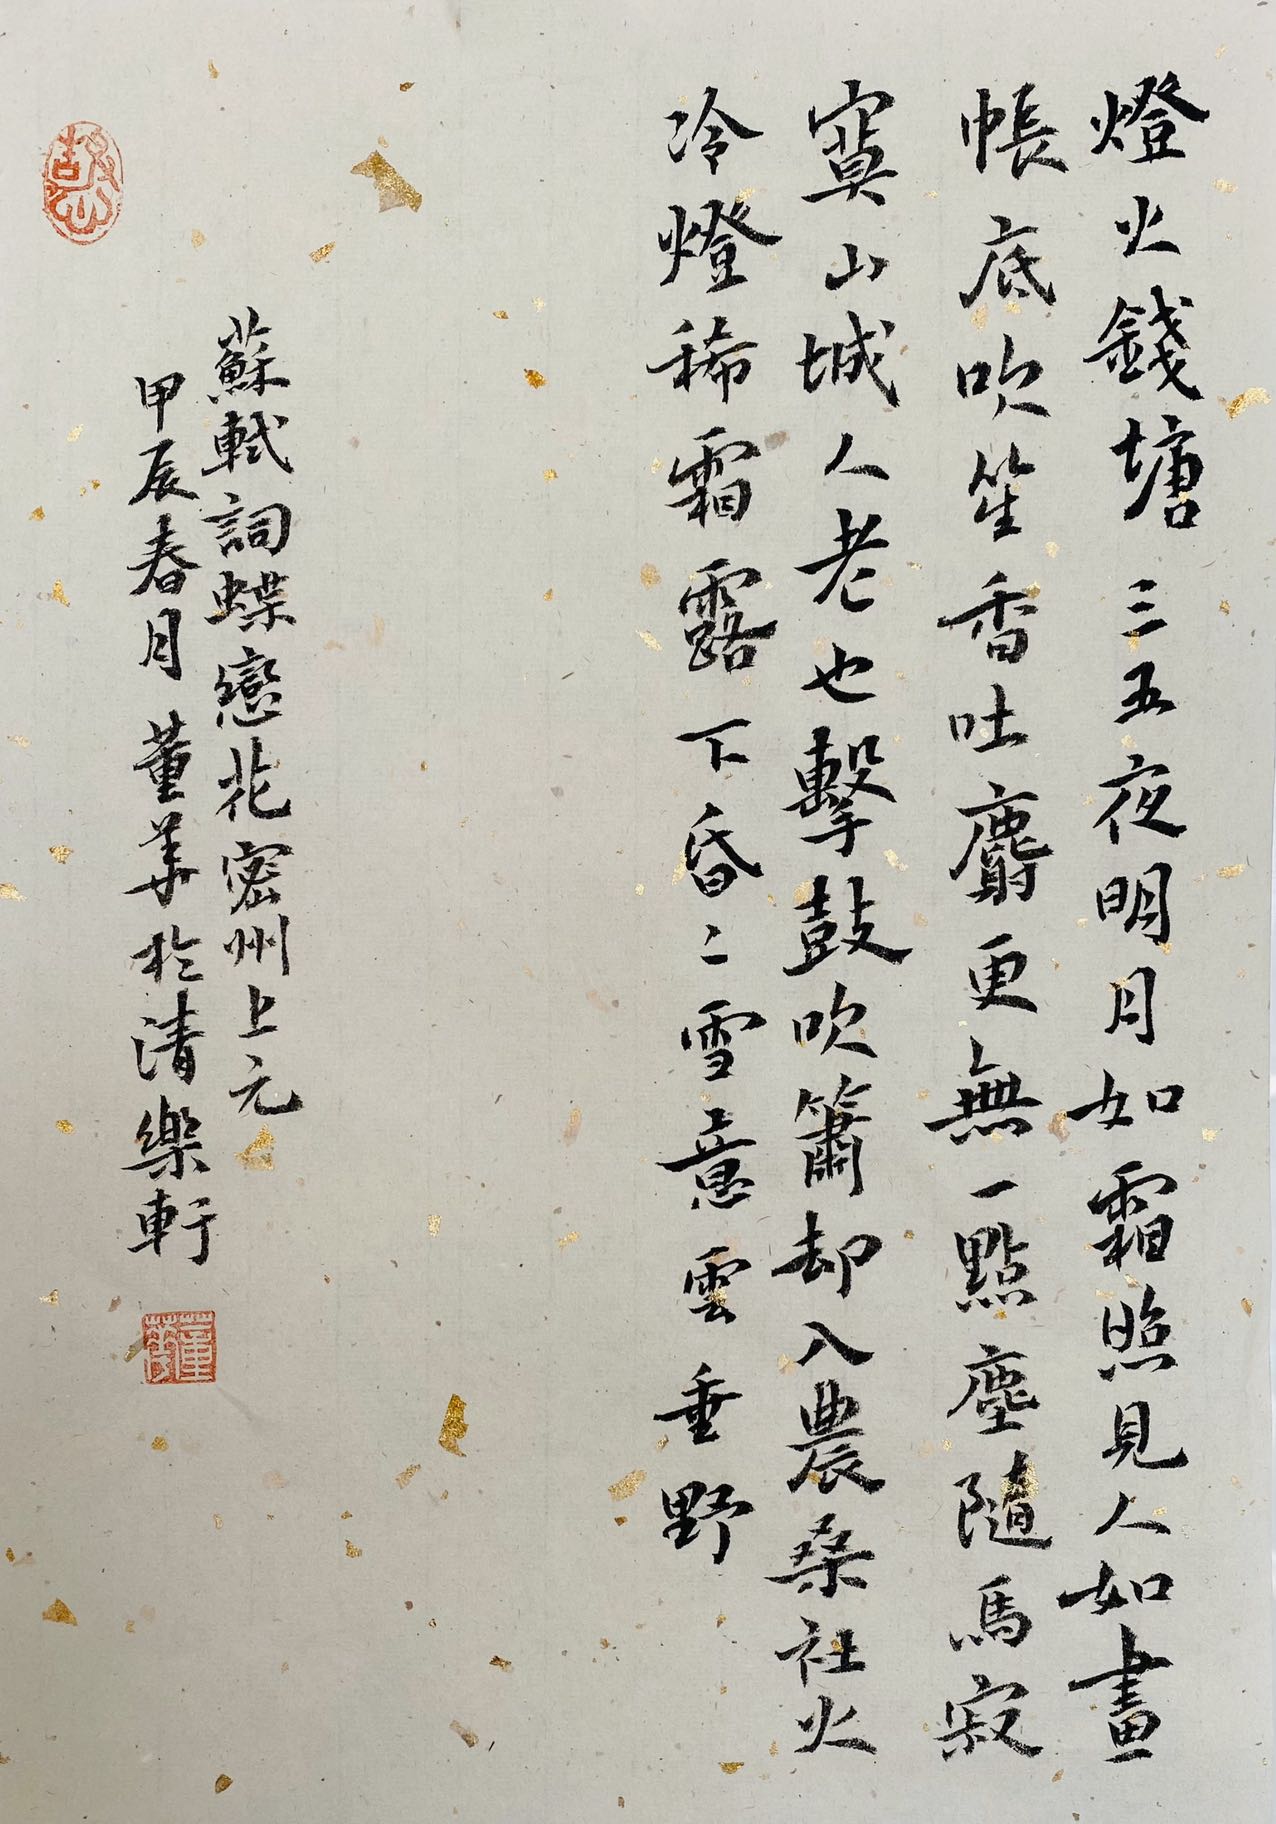 燈火錢塘三五夜明月如霜照見人如畫
帳底吹笙香吐麝更無一點塵隨馬寂
寞山城人老也擊鼓吹簫却入農桑社火
冷燈稀霜露下昏〻雪意雲垂野
蘇軾詞蝶戀花密州上元
甲辰春月董華於清樂軒
董華